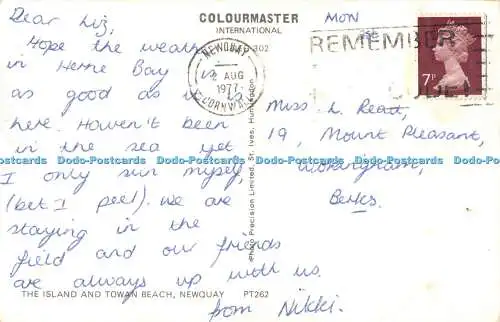 Dear Liz,
Hope the weather
in Herne Bay
as good as it is
here. Haven't been
in the sea yet
I only sun myself,
(bet I peel). We are
staying in the
field and our friends
are always up with us.
from Nikki.
COLOURMASTER
INTERNATIONAL
MON
NEWQUAY
AUG
1977
CORNWALL
REMEMBER
7P
Miss L.
19, Mount Pleasant,
Wokingham,
Berks.
Photo Precision Limited, St. Ives, Huntingdon
Dodo-Postcards Dodo-Postcards Dodo-Postcards Dodo-Postcards Dodo-Postcards
THE ISLAND AND TOWAN BEACH, NEWQUAY PT262